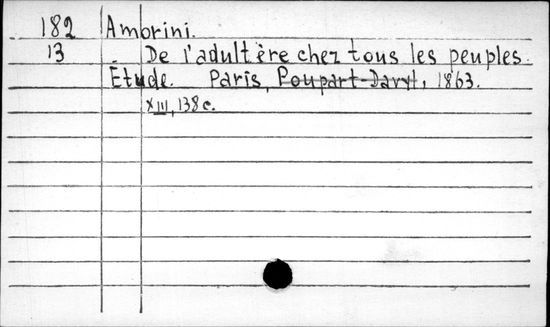 182 Ambrini.
13 De l'adultère chez tous les peuples.
Étude. Paris, Poupart-Davyl, 1863.
XIII, 138 c.